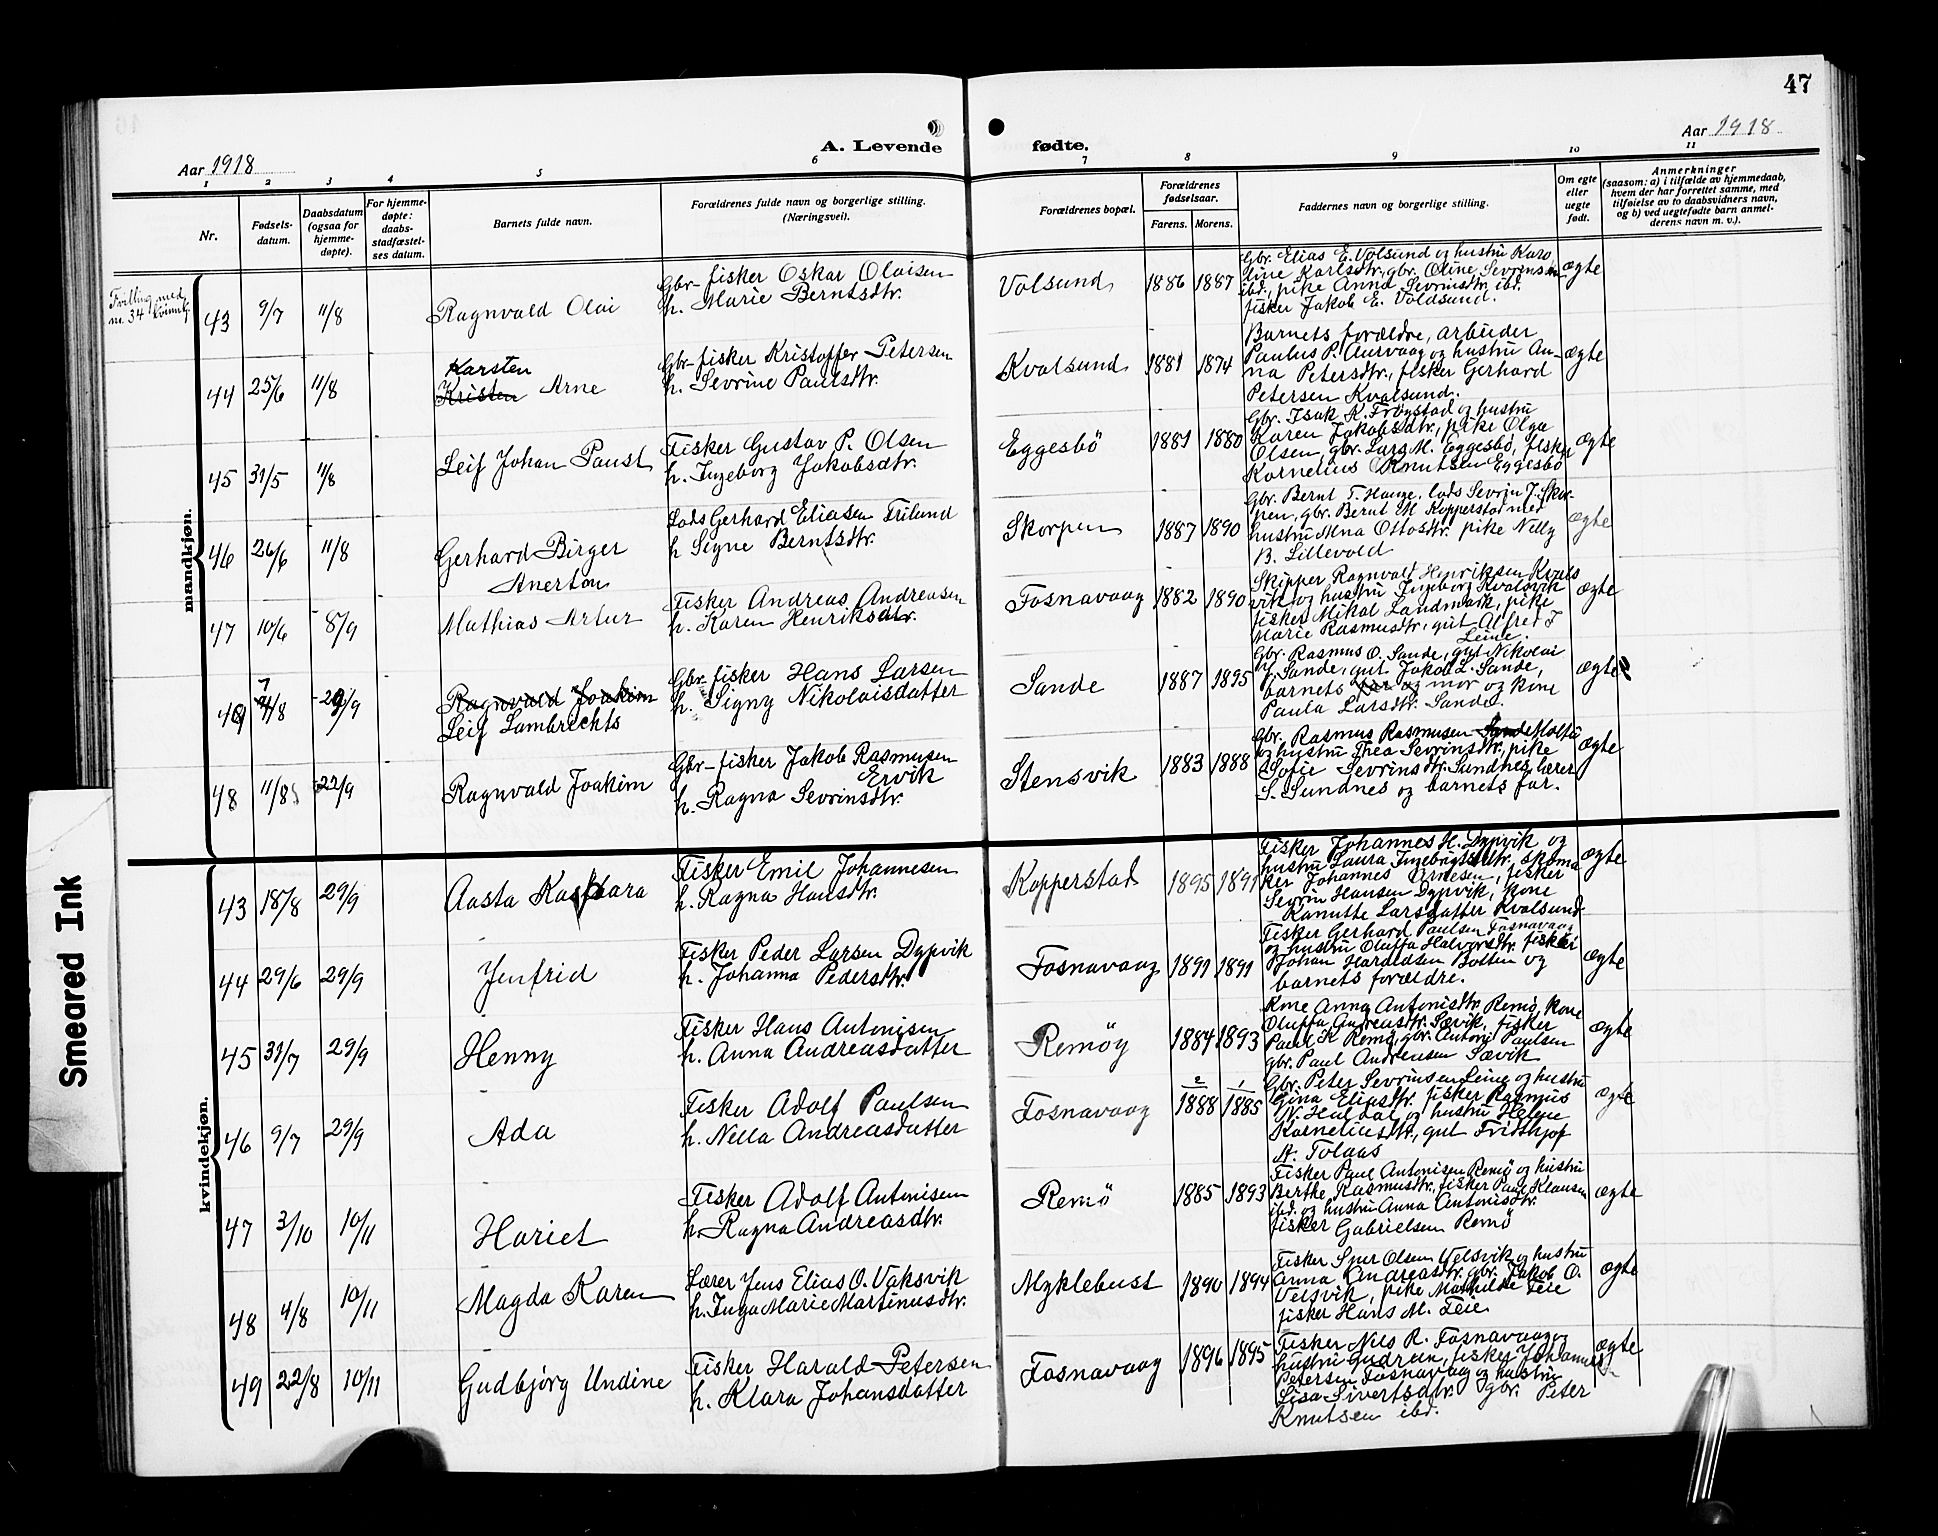 47
Aar 1918
A. Levende
fødte.
Aar 1918
1 2 3 4 5 6 7 8 9 10 11
Nr.
Fødsels-
datum.
Daabsdatum
(ogsaa for
hjemme-
døpte).
For hjemme-
døpte:
daabs-
stadfæstel-
ses datum.
Barnets fulde navn.
Forældrenes fulde navn og borgerlige stilling.
(Næringsvei).
Forældrenes bopæl.
Forældrenes
fødselsaar.
Farens. Morens.
Faddernes navn og borgerlige stilling.
Om egte
eller
uegte
født.
Anmerkninger
(saasom: a) i tilfælde av hjemmedaab,
hvem der har forrettet samme, med
tilføielse av to daabsvidners navn,
og b) ved uegtefødte barn anmel-
derens navn m. v.).
mandkjøn.
Tvilling med
nr. 34 kvinnek.
43 9/7 11/8
Ragnvald Olai
Gbr-fisker Oskar Olaisen
h. Marie Berntsdtr.
Volsund 1886 1887
Gbr. Elias E. Volsund og hustru Karo
line Karlsdtr., gbr. Oline Sevrens
ibd., pike Anna Sevrinsdtr. ibd.
fisker Jakob E. Voldsund.
ægte
44 25/6 11/8
Karsten
Kristen Arne
Gbr-fisker Kristoffer Petersen
h. Sevrine Paulsdtr.
Kvalsund 1881 1874
Barnets forældre, arbeider
Paulus P. Aurvaag og hustru An-
na Petersdtr., fisker Gerhard
Petersen Kvalsund.
ægte
45 31/5 11/8
Leif Johan Paust
Fisker Gustav P. Olsen
h. Ingeborg Jakobsdtr.
Eggesbö 1881 1880
Gbr. Isak K. Fröystad og hustru
Karen Jakobsdtr., pike Olga
Olsen, gbr. Lars M. Eggesbö, fisker
Kornelius Knutsen Eggesbö
ægte
46 26/6 11/8
Gerhard Birger
Anerton
Lods Gerhard Eliasen Trilund
h Signe Berntsdtr.
Skorpen 1887 1890
Gbr. Bernt T. Hauge, lods Sevrin J. Skor-
pen, gbr. Bernt M Kopperstad med
hustru Anna Ottosdtr. pike Nelly
B. Lillevold
ægte
47 10/6 8/9
Mathias Artur
Fisker Andreas Andreasen
h. Karen Henriksdtr.
Fosnavaag 1882 1890
Skipper Ragnvalf Henriksen Kvals
vik og hustru Ingeborg Kvalsvik
fisker Mikal Landmark, pike
Marie Rasmusdtr., gut Alfred J
Leine.
ægte
49 7/8 29/9
Ragnvald Joakim
Leif Lambrechts
Gbr-fisker Hans Larsen
h. Signy Nikolaisdatter
Sande 1887 1895
Gbr. Rasmus O. Sande, gut Nikolai
H. Sande, gut Jakob L. Sande,
barnets far og mor og kone
Paula Larsdtr. Sande.
ægte
48 11/8 22/9
Ragnvald Joakim
Gbr-fisker Jakob Rasmusen
Ervik
h. Ragna Sevrinsdtr.
Stensvik 1883 1888
Gbr. Rasmus Rasmusen Sande Moltu
og hustru Thea Sevrinsdtr., pike
Sofie Sevrinsdtr. Sundnes lærer
S. Sundnes og barnets far.
ægte
kvindekjøn.
43 18/8 29/9
Aasta Kasbara
Fisker Emil Johannesen
h. Ragna Hansdtr.
Kopperstad 1895 1891
Fisker Johannes H. Dypvik og
hustru Laura Ingebrigtsdtr., skoma
ker Johannes Arnesen, fisker
Sevrin Hansen Dypvik, kone
Kanutte Larsdatter Kvalsund
ægte
44 29/6 29/9
Jenfrid
Fisker Peder Larsen Dypvik
h. Johanna Pedersdtr.
Fosnavaag 1891 1891
Fisker Gerhard Paulsen Fosnavaag
og hustru Oluffa Halvorsdtr. fisker
Johan Haraldsen Botten og
barnets forældre.
ægte
45 31/7 29/9
Henny
Fisker Hans Antonisen
h. Anna Andreasdatter
Remöy 1884 1893
Kone Anna Antonisdtr. Remö, kone
Oluffa Andreasdtr. Sævik, fisker
Paul K Remö, gbr. Antoni Paulsen
gbr. Paul Andreasen Sævik
ægte
46 9/7 29/9
Ada
Fisker Adolf Paulsen
h. Nella Andreasdatter
Fosnavaag 2 1888 1 1885
Gbr. Peter Sevrinsen Leine og hustru
Gina Eliasdtr. fisker Rasmus
N. Huldal og hustru Helene
Korneliusdtr., gut Fridthjof
A. Tolaas
ægte
47 3/10 10/11
Hariet
Fisker Adolf Antonisen
h. Ragna Andreasdtr.
Remö 1885 1893
Fisker Paul Antonisen Remö og hustru
Berthe Rasmusdtr., fisker Paul Klausen
ibd. og hustru Anna Antonisdtr.
fisker Gabrielsen Remö
ægte
48 4/8 10/11
Magda Karen
Lærer Jens Elias O. Vaksvik
h. Inga Marie Martinusdtr.
Myklebust 1890 1894
Fisker Sjur Olsen Velsvik og hustru
Anna Andreasdtr. gbr. Jakob O.
Velsvik, pike Mathilde Teie
fisker Hans M. Teie
ægte
49 22/8 10/11
Gudbjørg Undine
Fisker Harald Petersen
h. Klara Johansdatter
Fosnavaag 1896 1895
Fisker Nils R. Fosnavaag og
hustru Gudrun, fisker Johannes
Petersen Fosnavaag og hustru
Lisa Sivertsdtr. gbr. Peter
Knutsen ibd.
ægte
Smeared Ink